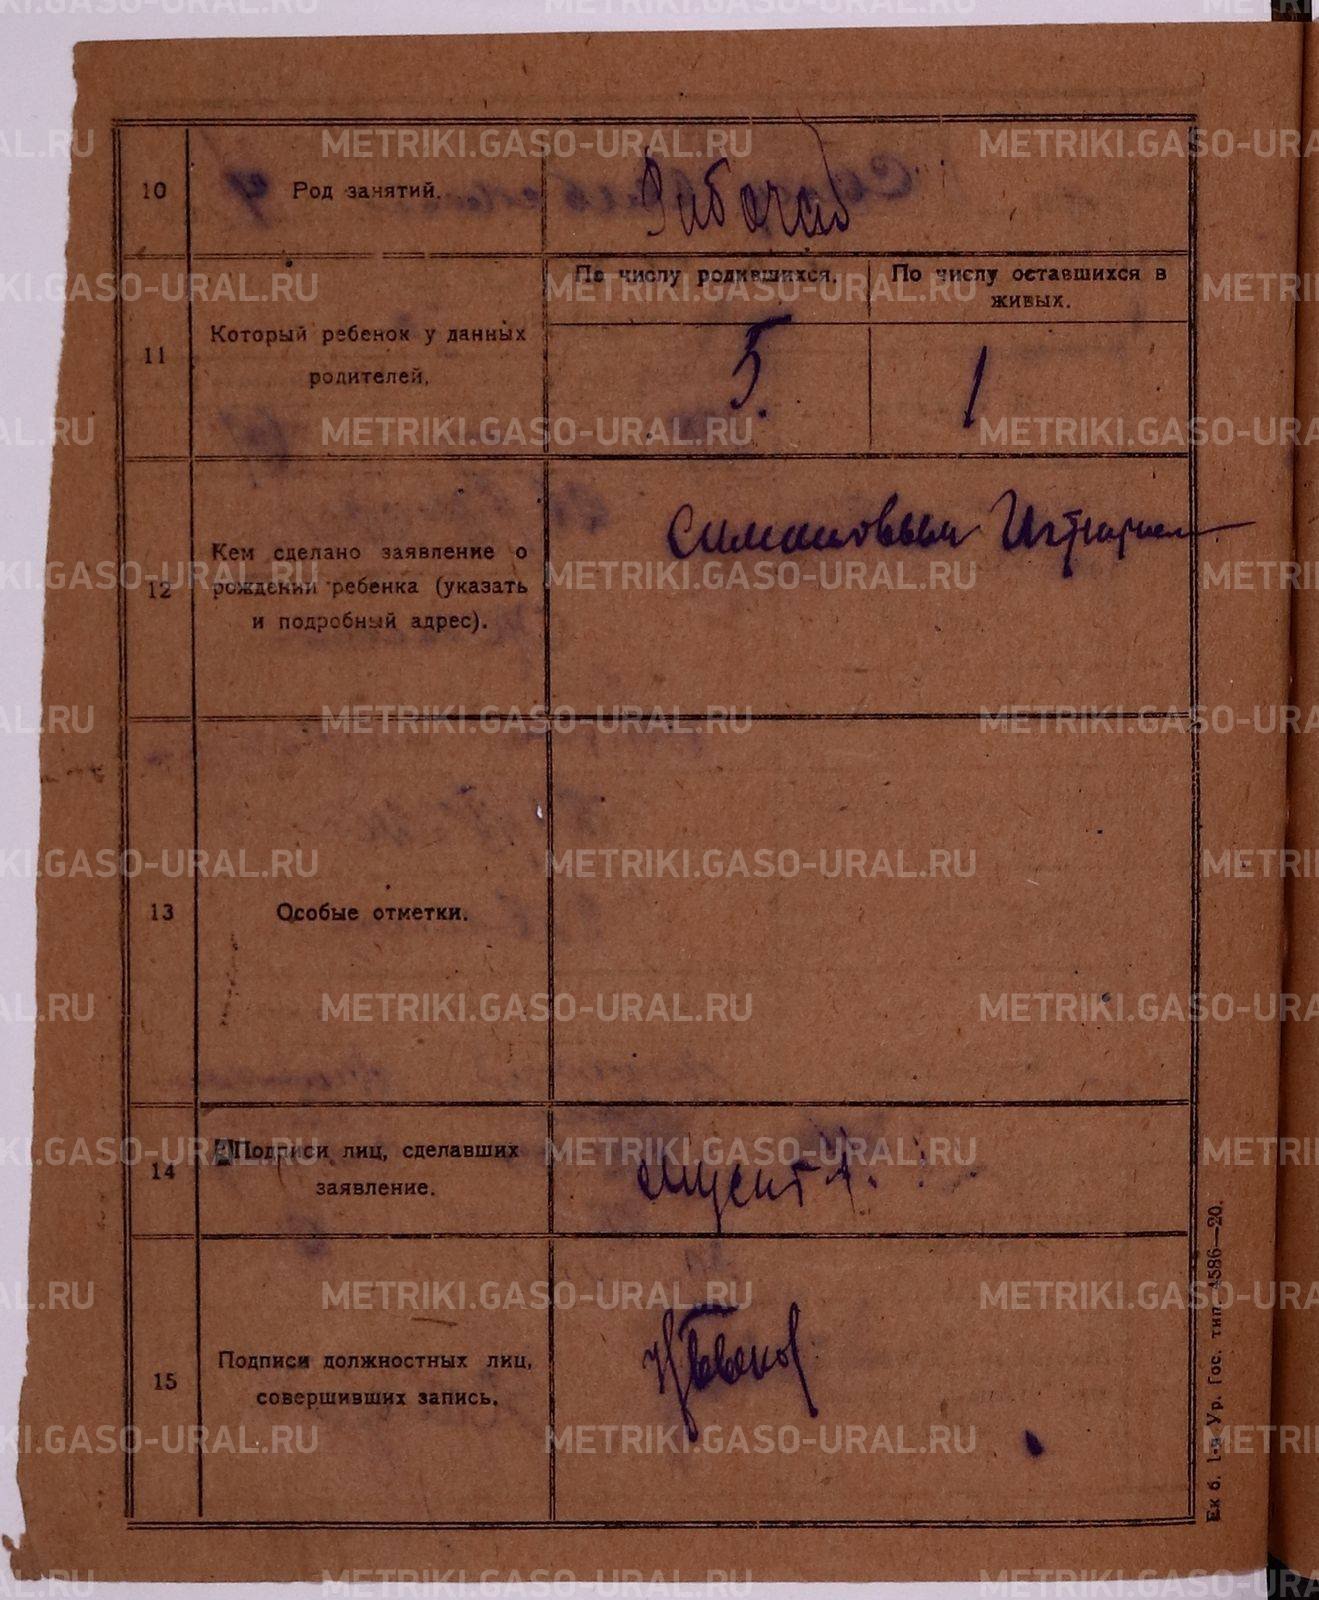 METRIKI.GASO-URAL.RU
10
Род занятий.
11
Который ребенок у данных
родителей.
По числу родившихся.
По числу оставшихся в
живых.
5.
1
12
Кем сделано заявление о
рождении ребенка (указать
и подробный адрес).
Симановым
13
Особые отметки.
14
Подписи лиц, сделавших
заявление.
15
Подписи должностных лиц,
совершивших запись.
Ек б. 1-я Ур. Гос. тип. 4586—20.